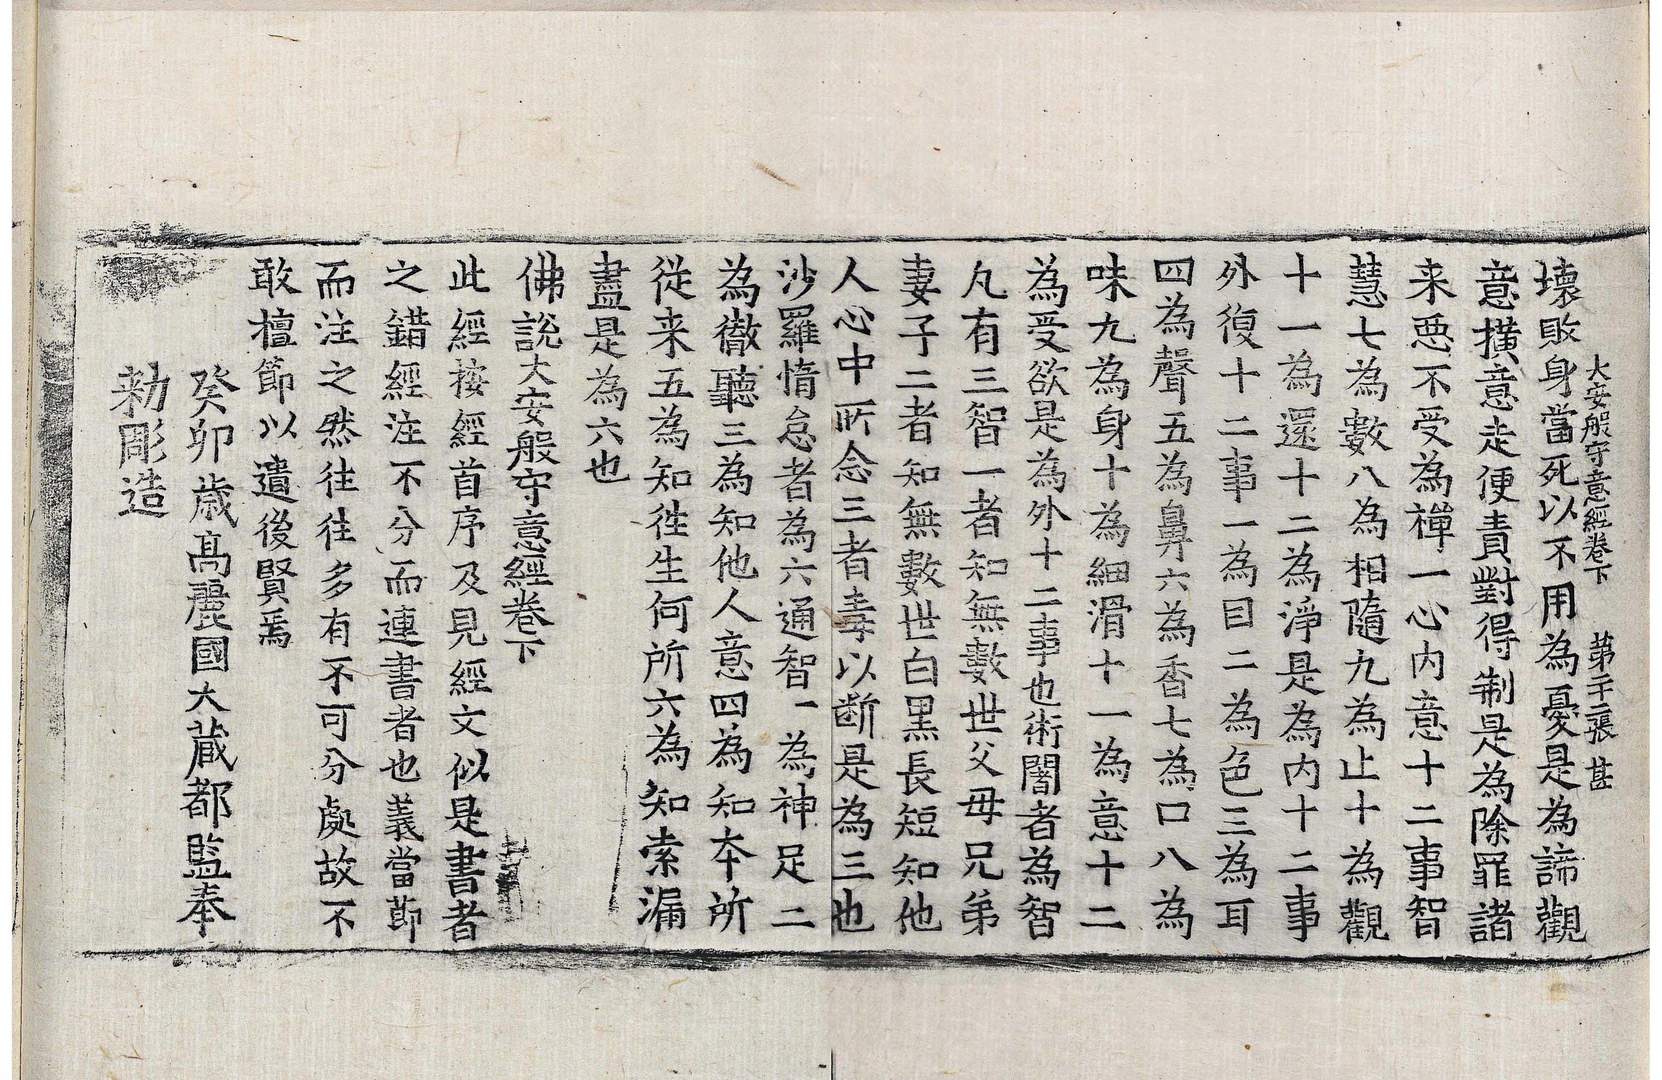 大安般守意經卷下 第二十二張 甚
壞敗身當死以不用為憂是為諦觀
意横意走便責對得制是為除罪諸
来惡不受為禪一心内意十二事智
慧七為數八為相隨九為止十為觀
十一為還十二為淨是為内十二事
外復十二事一為目二為色三為耳
四為聲五為鼻六為香七為口八為
味九為身十為細滑十一為意十二
為受欲是為外十二事也術闍者為智
凡有三智一者知無數世父母兄弟
妻子二者知無數世白黒長短知他
人心中所念三者毒以断是為三也
沙羅惰怠者為六通智一為神足二
為徹聽三為知他人意四為知本所
從来五為知徃生何所六為知索漏
盡是為六也
佛說大安般守意經卷下
此經按經首序及見經文似是書者
之錯經注不分而連書者也義當節
而注之然往往多有不可分處故不
敢擅節以遺後賢焉
癸卯歳髙麗國大藏都監奉
勑彫造